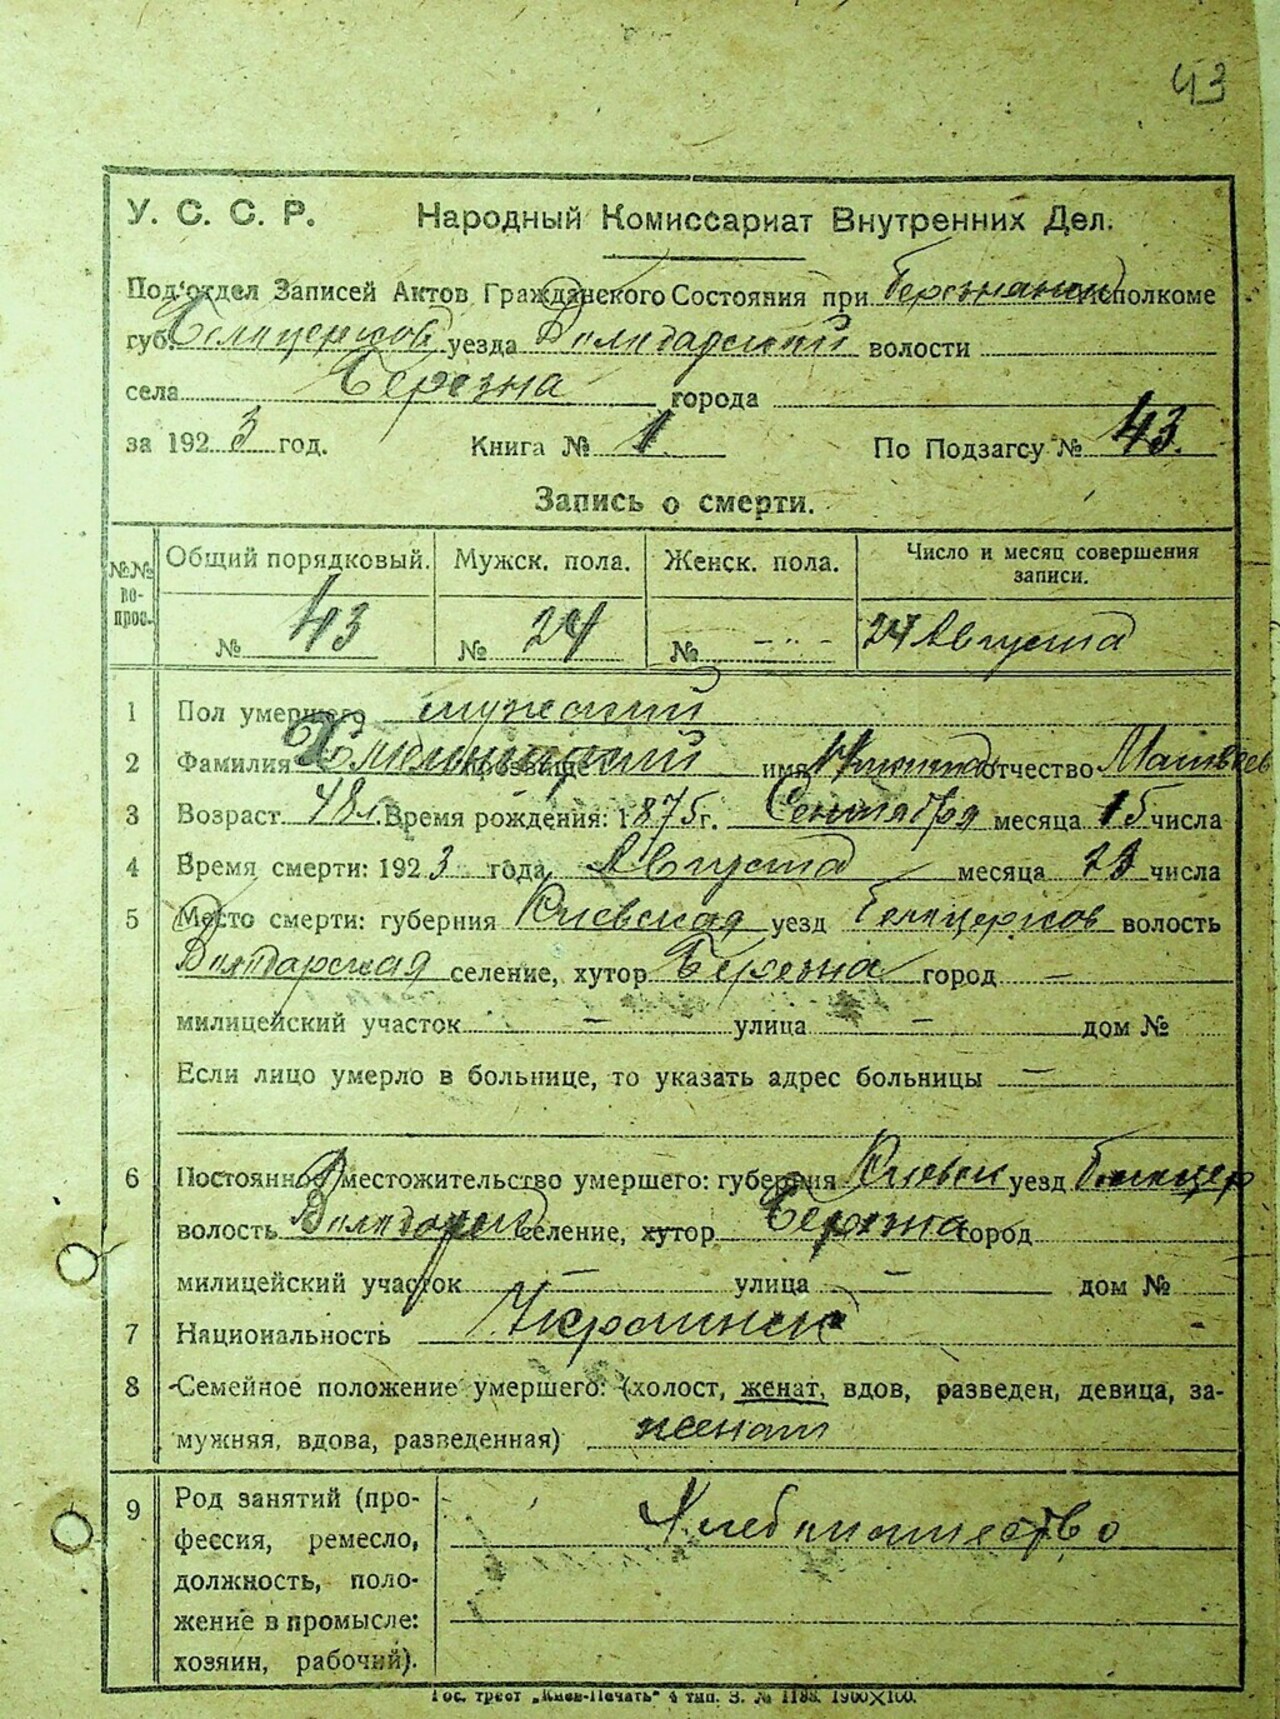 43
У. С. С. Р. Народный Комиссариат Внутренних Дел.
Под'отдел Записей Актов Гражданского Состояния при исполкоме
губ. Белоцерков уезда Володарский волости
села Березна города
за 1923 год. Книга № 1 По Подзагсу № 43.
Запись о смерти.
№№ во-прос. Общий порядковый. Мужск. пола. Женск. пола. Число и месяц совершения записи.
№ 43 № 24 № - " - 24 Августа
1 Пол умершего мужской
2 Фамилия прозвище имя отчество Матвеев
3 Возраст 48 л. Время рождения: 1875 г. Сентября месяца 15 числа
4 Время смерти: 1923 года Августа месяца 23 числа
5 Место смерти: губерния Киевская уезд Белоцерков волость
Володарская селение, хутор Березна город —
милицейский участок — улица — дом №
Если лицо умерло в больнице, то указать адрес больницы —
6 Постоянное местожительство умершего: губерния Киевск уезд Белоцер
волость Володарск селение, хутор Березна город
милицейский участок — улица — дом №
7 Национальность -
8 Семейное положение умершего: (холост, женат, вдов, разведен, девица, за-
мужняя, вдова, разведенная) женат
9 Род занятий (про-
фессия, ремесло, Хлебопашество
должность, поло-
жение в промысле:
хозяин, рабочий).
Гос. трест „Киев-Печать" 4 тип. З. № 1198. 1900×100.